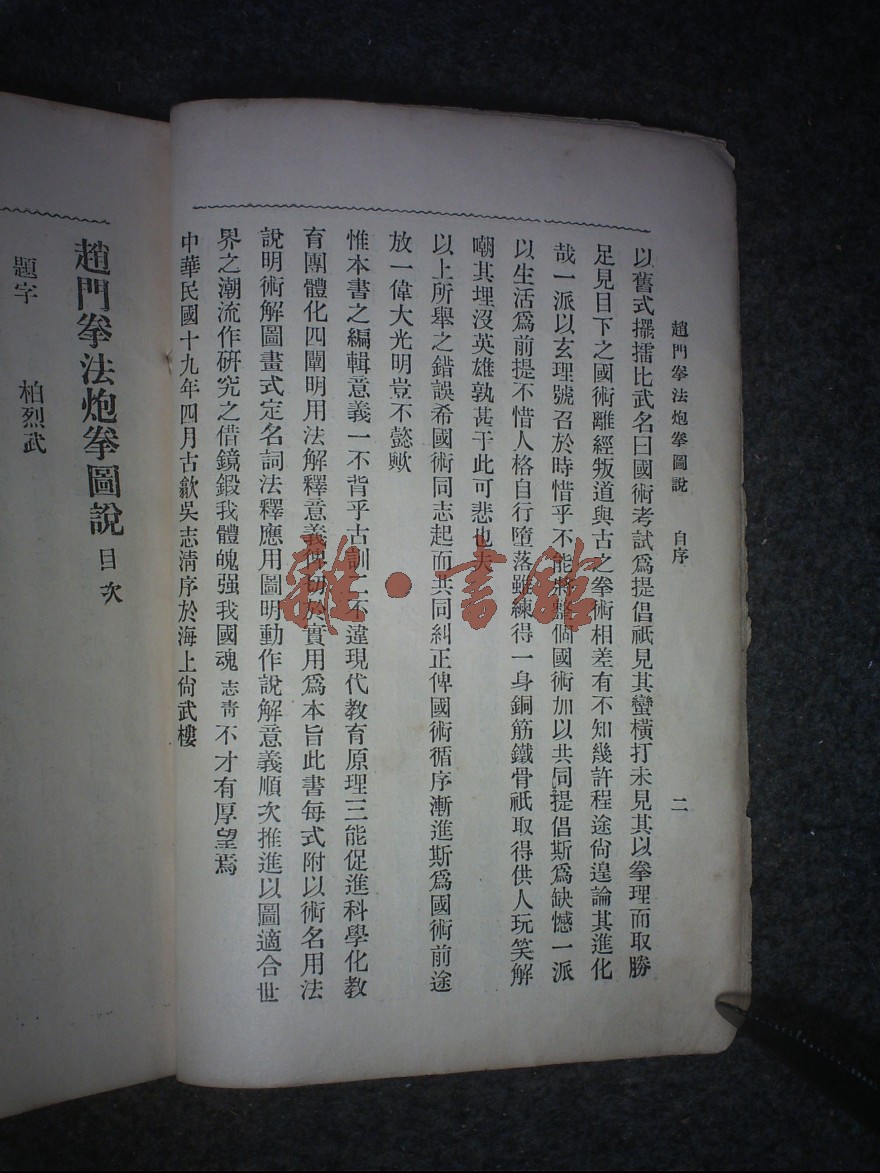 趙門拳法炮拳圖說 自序 二
以舊式擂擂比武名曰國術考試爲提倡祇見其蠻橫打未見其以拳理而取勝
足見目下之國術離經叛道與古之拳術相差有不知幾許程途尙遑論其進化
哉一派以玄理號召於時惜乎不能將整個國術加以共同提倡斯爲缺憾一派
以生活爲前提不惜人格自行墮落雖練得一身銅筋鐵骨祇取得供人玩笑解
嘲其埋沒英雄孰甚于此可悲也夫
以上所舉之錯誤希國術同志起而共同糾正俾國術循序漸進斯爲國術前途
放一偉大光明豈不懿歟
惟本書之編輯意義一不背乎古訓二不違現代教育原理三能促進科學化教
育團體化四闡明用法解釋意義俾切於實用爲本旨此書每式附以術名用法
說明術解圖畫式定名詞法釋應用圖明動作說解意義順次推進以圖適合世
界之潮流作硏究之借鏡鍛我體魄强我國魂志靑不才有厚望焉
中華民國十九年四月古歙吳志淸序於海上尙武樓
趙門拳法炮拳圖說 目次
題字 柏烈武
雜·書館